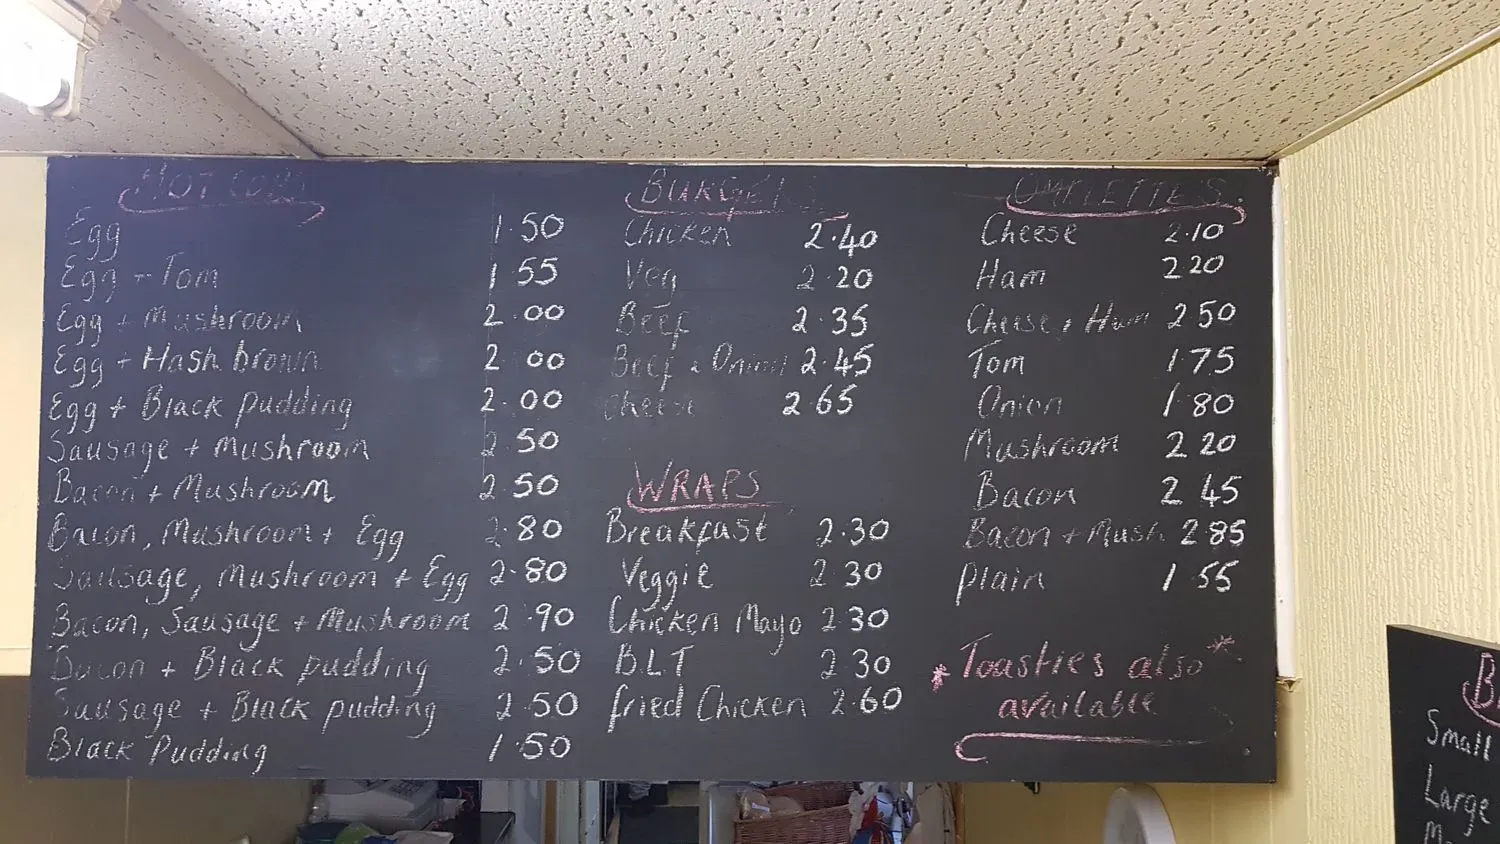 HOT COBS
Egg 1.50
Egg + Tom 1.55
Egg + Mushroom 2.00
Egg + Hash brown 2.00
Egg + Black pudding 2.00
Sausage + Mushroom 2.50
Bacon + Mushroom 2.50
Bacon, Mushroom + Egg 2.80
Sausage, Mushroom + Egg 2.80
Bacon, Sausage + Mushroom 2.90
Bacon + Black pudding 2.50
Sausage + Black pudding 2.50
Black Pudding 1.50
BURGERS
Chicken 2.40
Veg 2.20
Beef 2.35
Beef & Onion 2.45
Cheese 2.65
WRAPS
Breakfast 2.30
Veggie 2.30
Chicken Mayo 2.30
B.L.T 2.30
fried Chicken 2.60
OMELETTE'S.
Cheese 2.10
Ham 2.20
Cheese + Ham 2.50
Tom 1.75
Onion 1.80
Mushroom 2.20
Bacon 2.45
Bacon + Mush 2.85
Plain 1.55
* Toasties also *
available
Small
Large